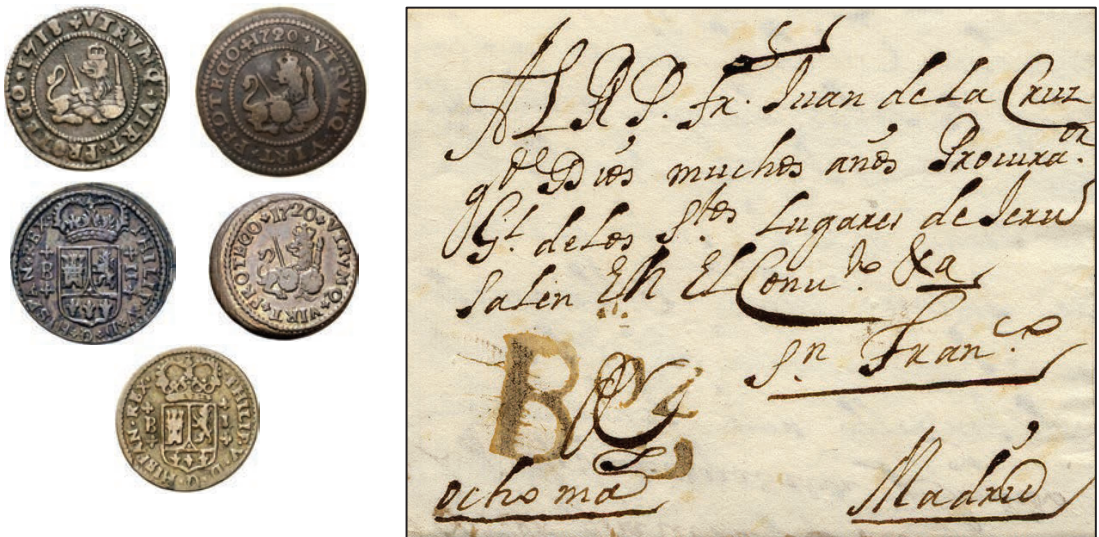 VTRVMQ·VIRT·PROTEGO·1718
VTRVMQ·VIRT·PROTEGO·1720
PHILIP·V·D·G·HISPAN·REX
B
VTRVMQ·VIRT·PROTEGO·1720
PHILIP·V·D·G·HISPAN·REX
B
Al R P. fr. Juan de la Cruz
gde Dios muchos años Procuraor
Gl. de los Stos Lugares de Jeru
salen En El Convto
Sn Franco
B
ocho
Madrid